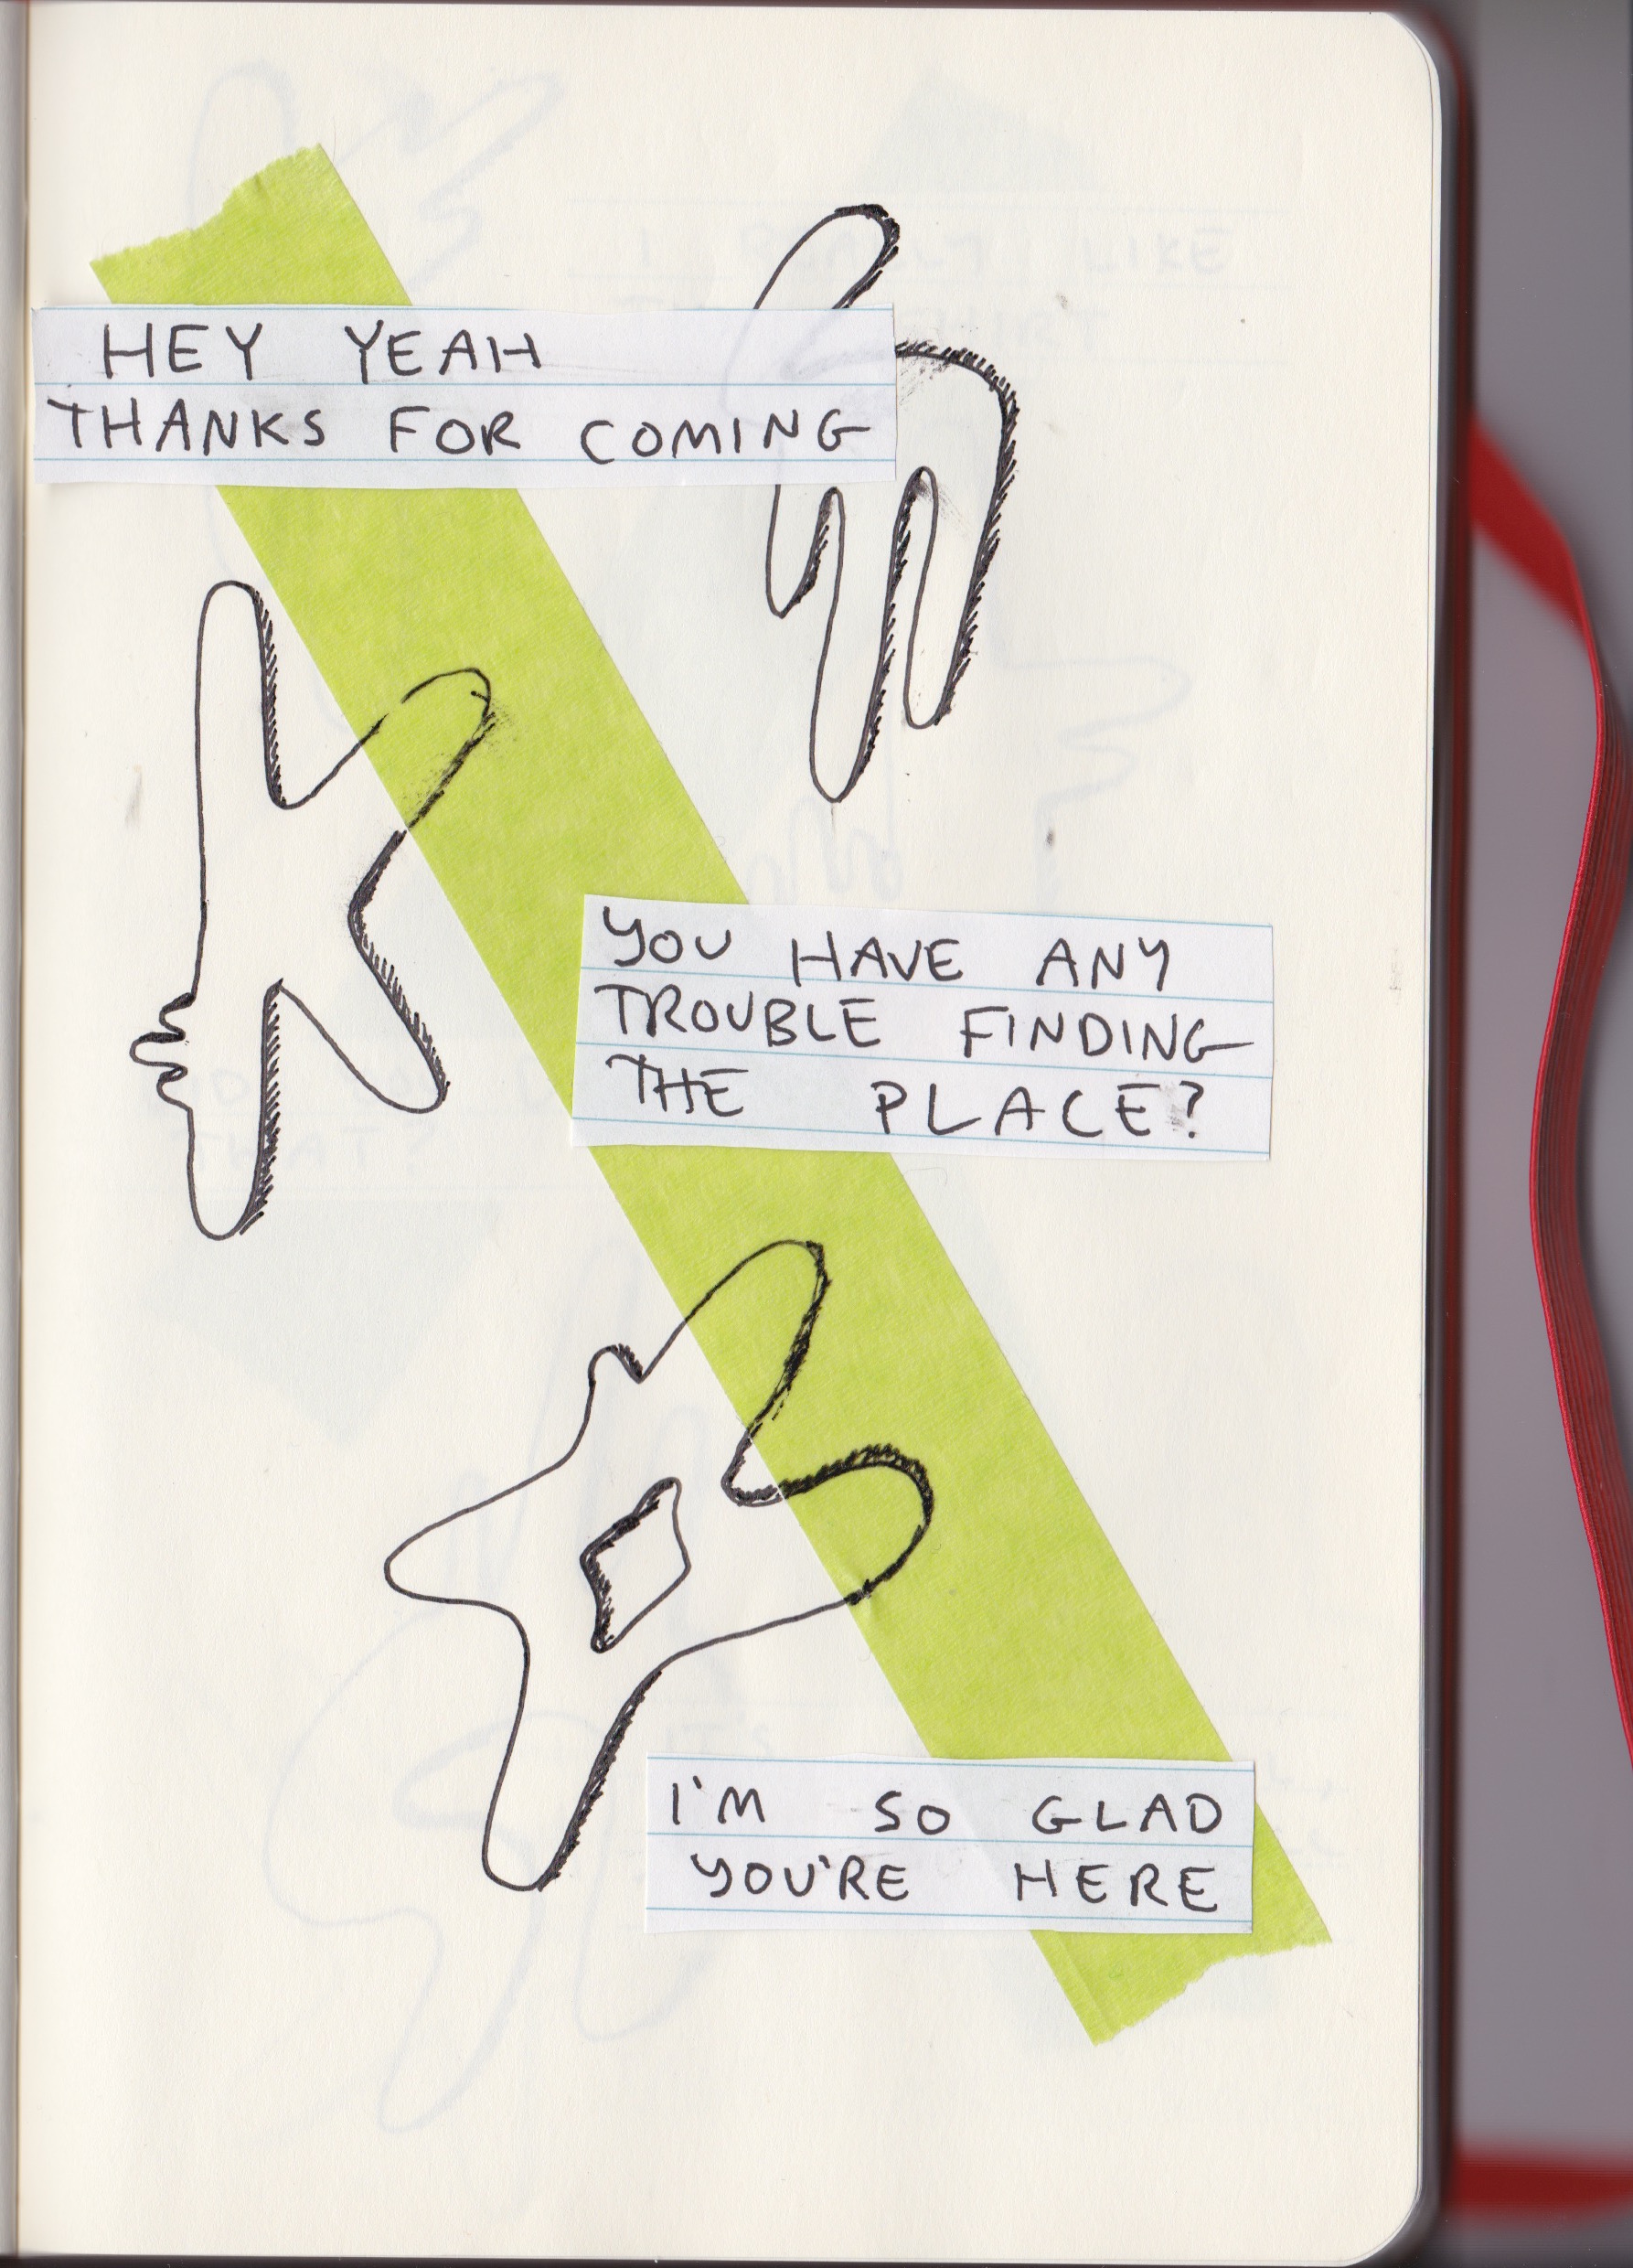 HEY YEAH
THANKS FOR COMING
YOU HAVE ANY
TROUBLE FINDING
THE PLACE?
I'M SO GLAD
YOU'RE HERE